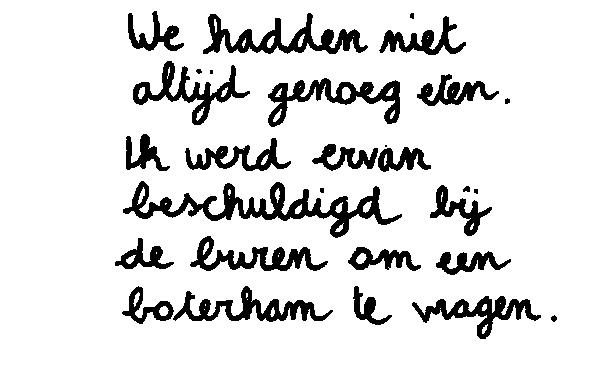 We hadden niet
altijd genoeg eten.
Ik werd ervan
beschuldigd bij
de buren om een
boterham te vragen.